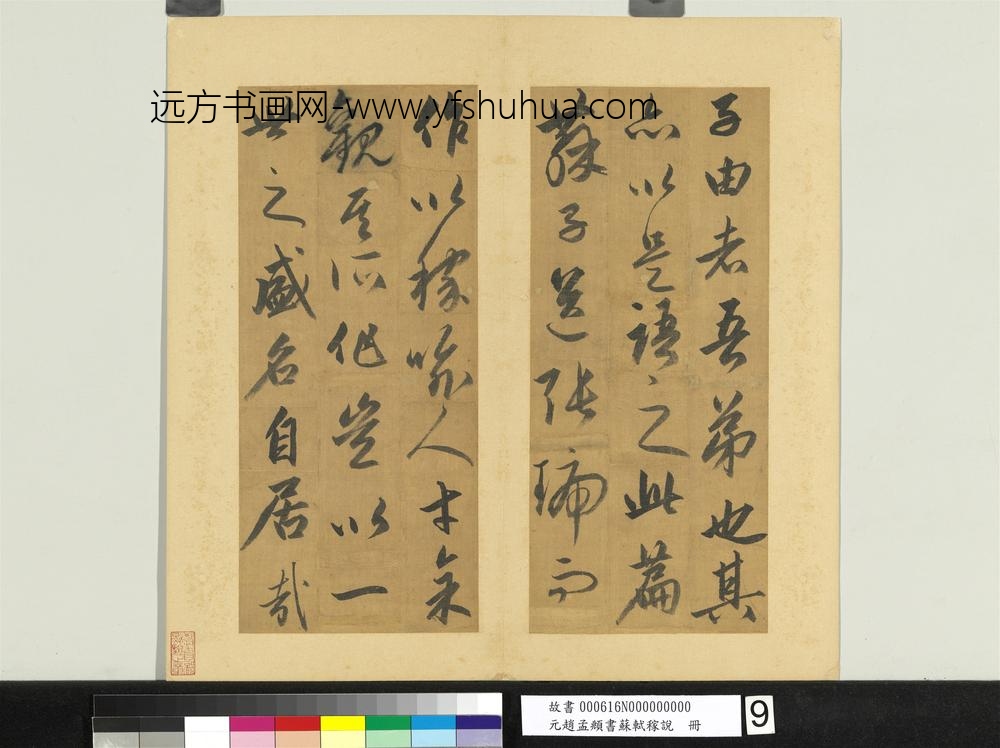 子由者吾弟也其
亦以是語之此篇
蘇子送張琥而
作以稼喻人才氣
觀其所作豈以一
世之盛名自居哉
远方书画网-www.yfshuhua.com
故書 000616N000000000
元趙孟頫書蘇軾稼說 冊
9